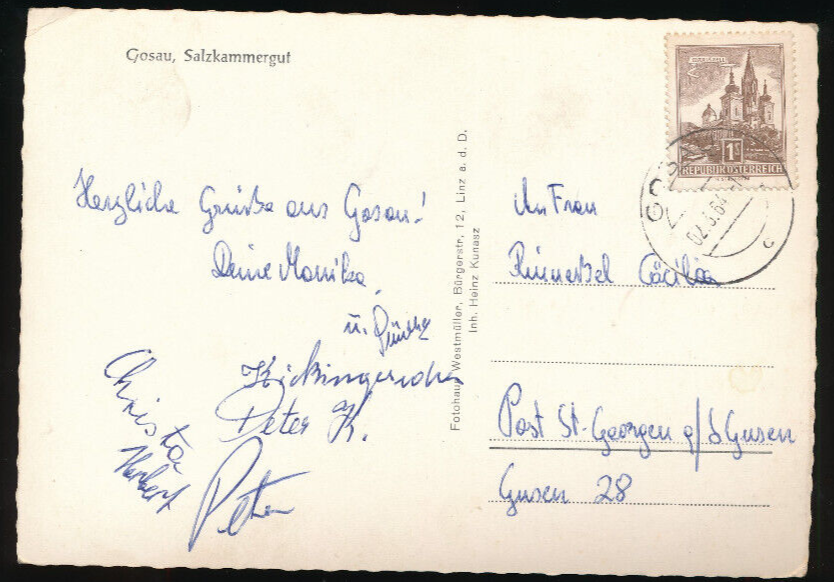 Gosau, Salzkammergut
Herzliche Grüße aus Gosau!
Deine Monika
u. Günther
Peter K.
Christa
Herbert
Peter
Fotohaus Westmüller, Bürgerstr. 12, Linz a. d. D.
Inh. Heinz Kunasz
1S
REPUBLIK ÖSTERREICH
GOSAU
An Frau
Cäcilia
Post St. Georgen a/d Gusen
Gusen 28